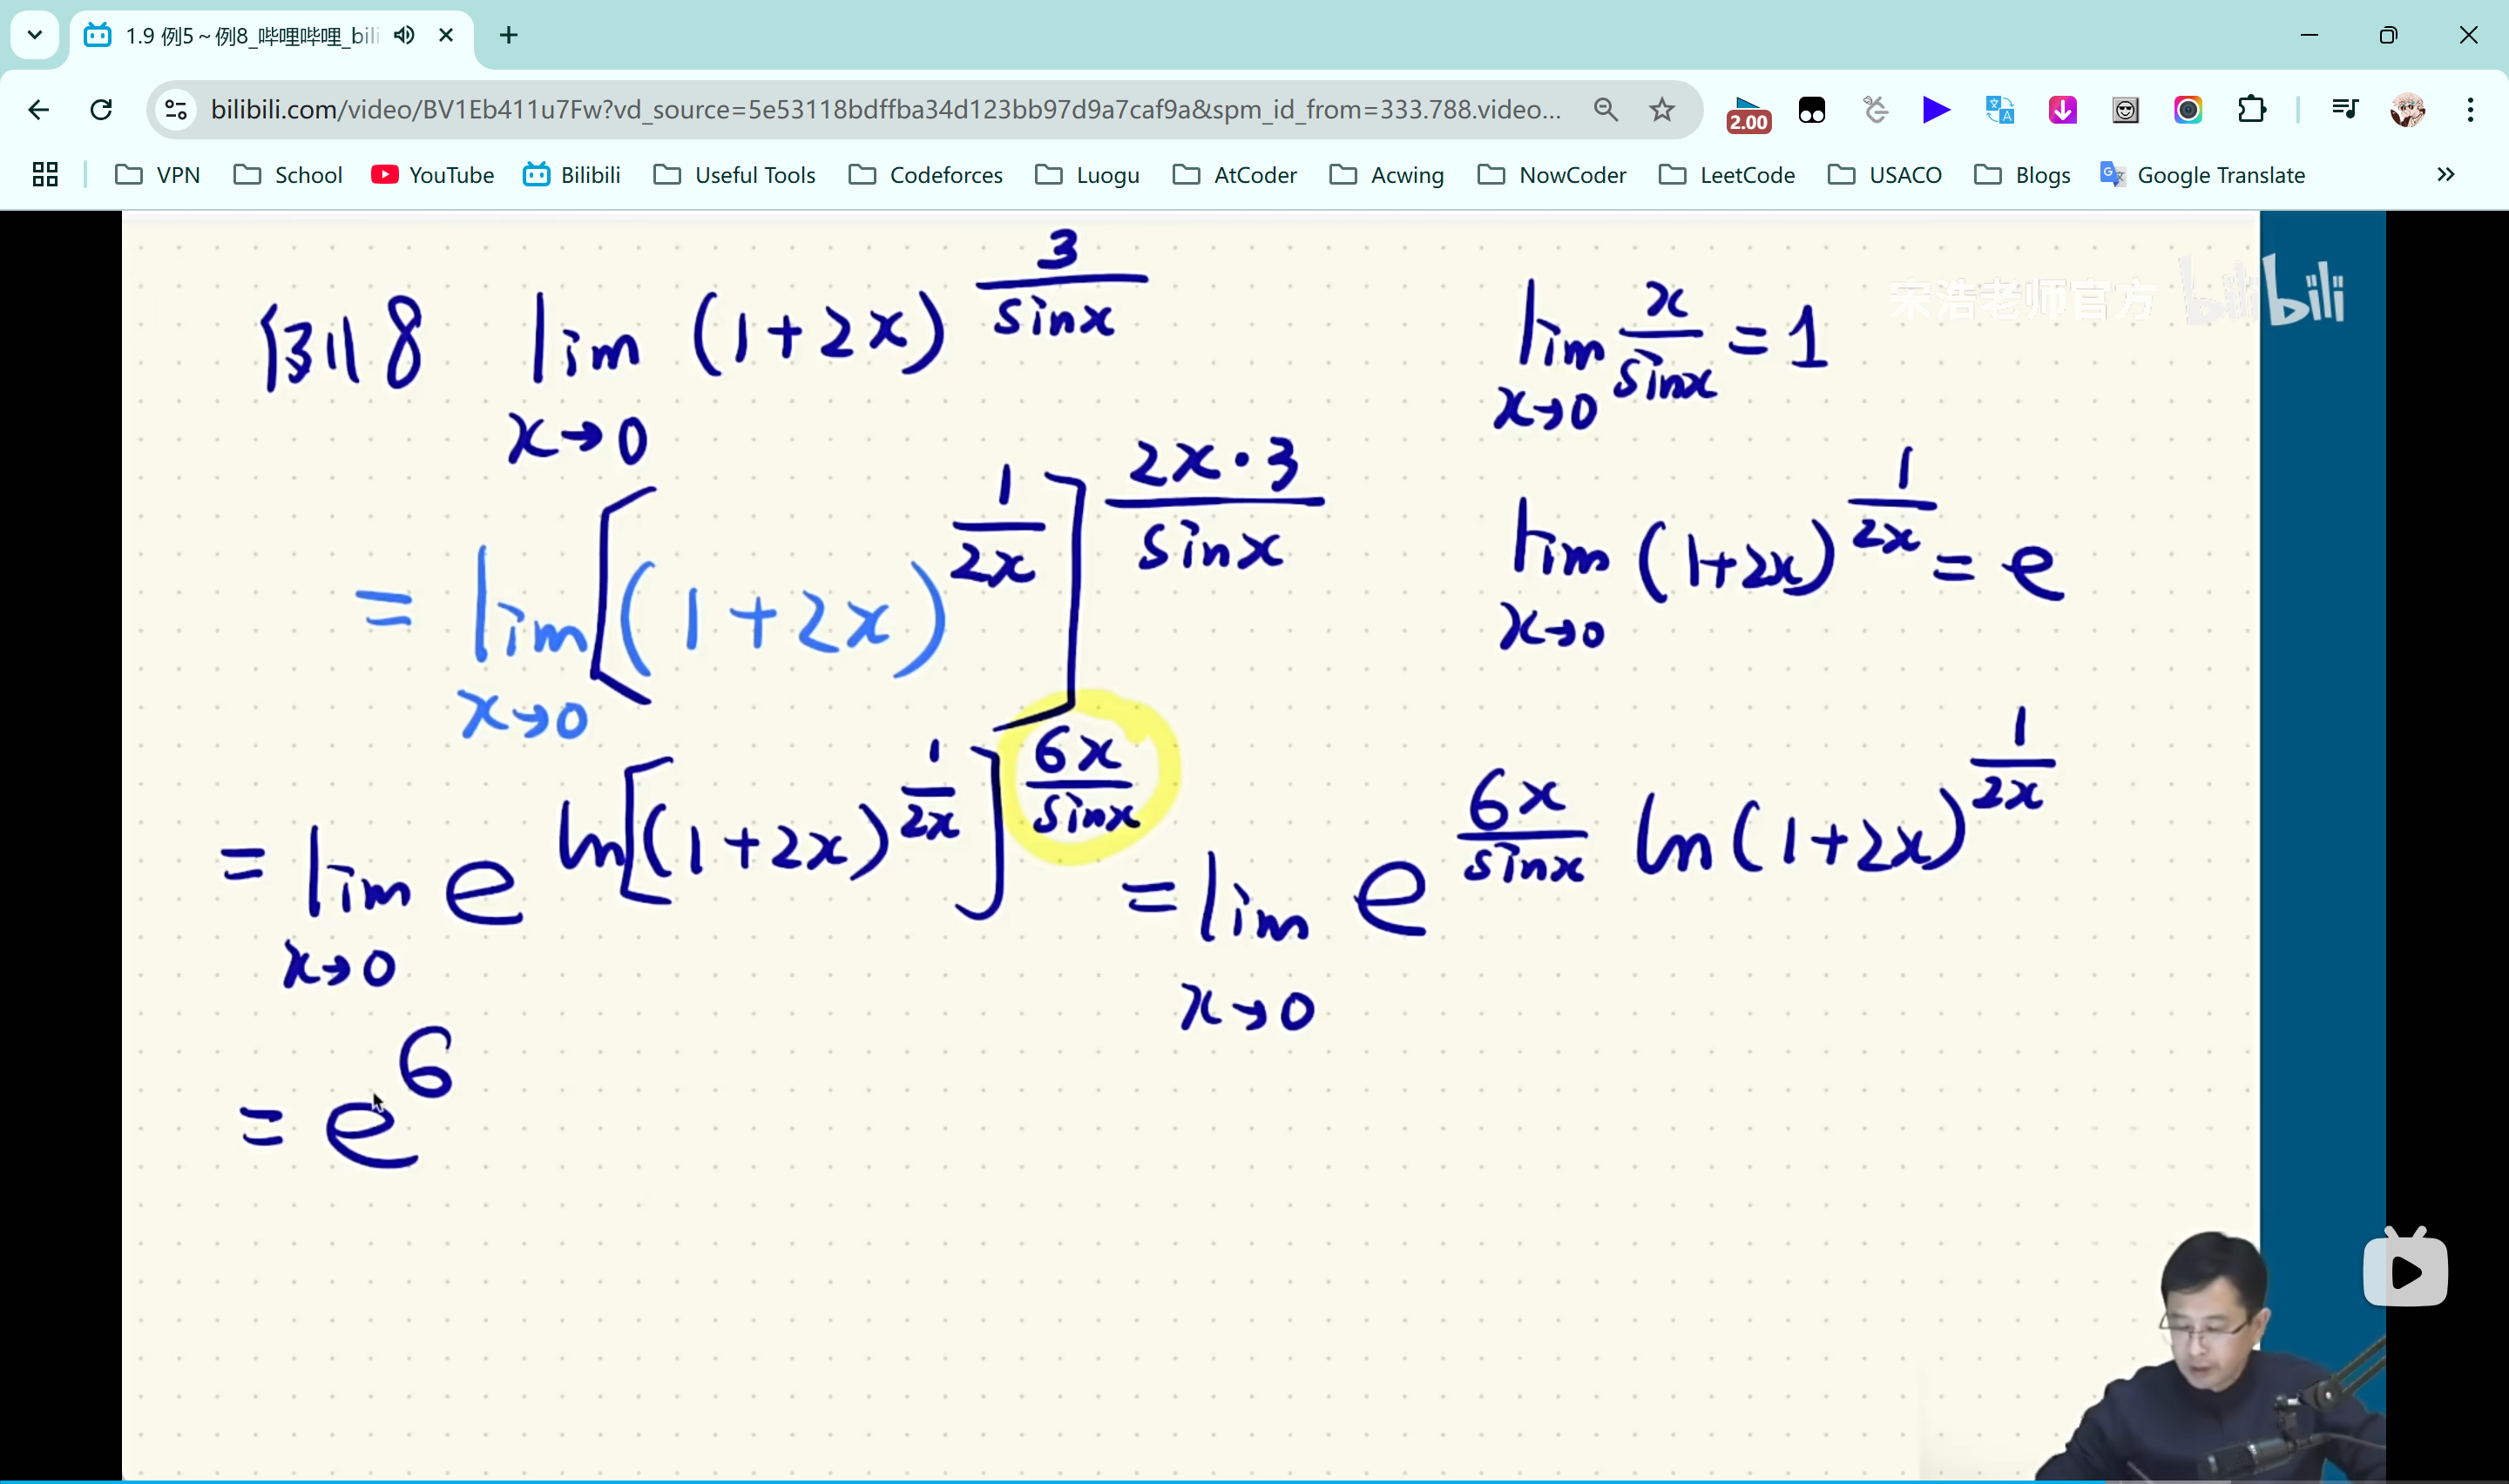 1.9 例5～例8_哔哩哔哩_bili
bilibili.com/video/BV1Eb411u7Fw?vd_source=5e53118bdffba34d123bb97d9a7caf9a&spm_id_from=333.788.video...
2.00
VPN School YouTube Bilibili Useful Tools Codeforces Luogu AtCoder Acwing NowCoder LeetCode USACO Blogs Google Translate
宋浩老师官方 bilibili
例8 lim_{x→0} (1+2x)^{3/sinx}
lim_{x→0} x/sinx = 1
= lim_{x→0} [(1+2x)^{1/2x}]^{2x·3/sinx}
lim_{x→0} (1+2x)^{1/2x} = e
= lim_{x→0} e^{ln[(1+2x)^{1/2x}]^{6x/sinx}} = lim_{x→0} e^{6x/sinx ln(1+2x)^{1/2x}}
= e^6